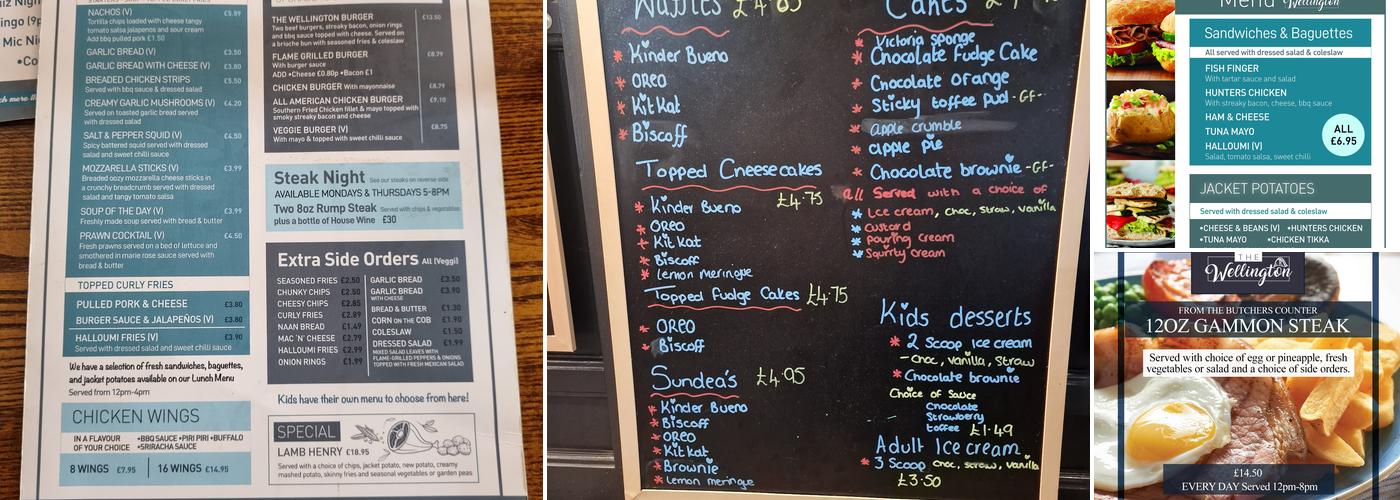 NACHOS (V) £5.89
Tortilla chips loaded with cheese tangy
tomato salsa jalapenos and sour cream
Add bbq pulled pork £1.50
GARLIC BREAD (V) £3.50
GARLIC BREAD WITH CHEESE (V) £3.90
BREADED CHICKEN STRIPS £5.50
Served with bbq sauce & dressed salad
CREAMY GARLIC MUSHROOMS (V) £4.20
Served on toasted garlic bread served
with dressed salad
SALT & PEPPER SQUID (V) £4.50
Spicy battered squid served with dressed
salad and sweet chilli sauce
MOZZARELLA STICKS (V) £3.99
Breaded oozy mozzarella cheese sticks in
a crunchy breadcrumb served with dressed
salad and tangy tomato salsa
SOUP OF THE DAY (V) £3.99
Freshly made soup served with bread & butter
PRAWN COCKTAIL (V) £4.50
Fresh prawns served on a bed of lettuce and
smothered in marie rose sauce served with
bread & butter
TOPPED CURLY FRIES
PULLED PORK & CHEESE £3.80
BURGER SAUCE & JALAPEÑOS (V) £3.80
HALLOUMI FRIES (V) £3.90
Served with dressed salad and sweet chilli sauce
We have a selection of fresh sandwiches, baguettes,
and jacket potatoes available on our Lunch Menu
Served from 12pm-4pm
CHICKEN WINGS
IN A FLAVOUR OF YOUR CHOICE •BBQ SAUCE •PIRI PIRI •BUFFALO
•SRIRACHA SAUCE
8 WINGS £7.95 16 WINGS £14.95
THE WELLINGTON BURGER £13.50
Two beef burgers, streaky bacon, onion rings
and bbq sauce topped with cheese. Served on
a brioche bun with seasoned fries & coleslaw
FLAME GRILLED BURGER £8.79
With burger sauce
ADD •Cheese £0.80p •Bacon £1
CHICKEN BURGER With mayonnaise £8.79
ALL AMERICAN CHICKEN BURGER £9.10
Southern Fried Chicken fillet & mayo topped with
smoky streaky bacon and cheese
VEGGIE BURGER (V) £8.75
With mayo & topped with sweet chilli sauce
Steak Night See our steaks on reverse side
AVAILABLE MONDAYS & THURSDAYS 5-8PM
Two 8oz Rump Steak Served with chips & vegetables
plus a bottle of House Wine £30
Extra Side Orders All (Veggi)
SEASONED FRIES £2.50
CHUNKY CHIPS £2.50
CHEESY CHIPS £2.85
CURLY FRIES £2.89
NAAN BREAD £1.49
MAC 'N' CHEESE £2.79
HALLOUMI FRIES £2.99
ONION RINGS £1.99
GARLIC BREAD £3.50
GARLIC BREAD £3.90
WITH CHEESE
BREAD & BUTTER £1.30
CORN ON THE COB £1.90
COLESLAW £1.50
DRESSED SALAD £1.99
MIXED SALAD LEAVES WITH
FLAME-GRILLED PEPPERS & ONIONS
TOPPED WITH FRESH MEXICAN SALAD
Kids have their own menu to choose from here!
SPECIAL
LAMB HENRY £18.95
Served with a choice of chips, jacket potato, new potato, creamy
mashed potato, skinny fries and seasonal vegetables or garden peas
Waffles
* Kinder Bueno
* OREO
* Kit Kat
* Biscoff
Topped Cheesecakes
£4.75
* Kinder Bueno
* OREO
* Kit Kat
* Biscoff
* Lemon Meringue
Topped Fudge Cakes £4.75
* OREO
* Biscoff
Sundea's £4.95
* Kinder Bueno
* Biscoff
* OREO
* Kit Kat
* Brownie
* Lemon meringe
Cakes
* Victoria sponge
* Chocolate Fudge Cake
* Chocolate orange
* Sticky toffee pud -GF-
* apple crumble
* apple pie
* Chocolate brownie -GF-
all Served with a choice of
* Ice cream, choc, straw, vanilla
* Custard
* pouring cream
* Squirty cream
Kids desserts
* 2 Scoop Ice cream
- Choc, vanilla, Straw
* Chocolate brownie
Choice of Sauce
Chocolate
Strawberry
toffee £1.49
Adult Ice cream
* 3 Scoop choc, straw, vanilla
£3.50
Menu Wellington
Sandwiches & Baguettes
All served with dressed salad & coleslaw
FISH FINGER
With tartar sauce and salad
HUNTERS CHICKEN
With streaky bacon, cheese, bbq sauce
HAM & CHEESE
TUNA MAYO
HALLOUMI (V)
Salad, tomato salsa, sweet chilli
ALL
£6.95
JACKET POTATOES
Served with dressed salad & coleslaw
•CHEESE & BEANS (V) •HUNTERS CHICKEN
•TUNA MAYO •CHICKEN TIKKA
THE
Wellington
FROM THE BUTCHERS COUNTER
12OZ GAMMON STEAK
Served with choice of egg or pineapple, fresh
vegetables or salad and a choice of side orders.
£14.50
EVERY DAY Served 12pm-8pm